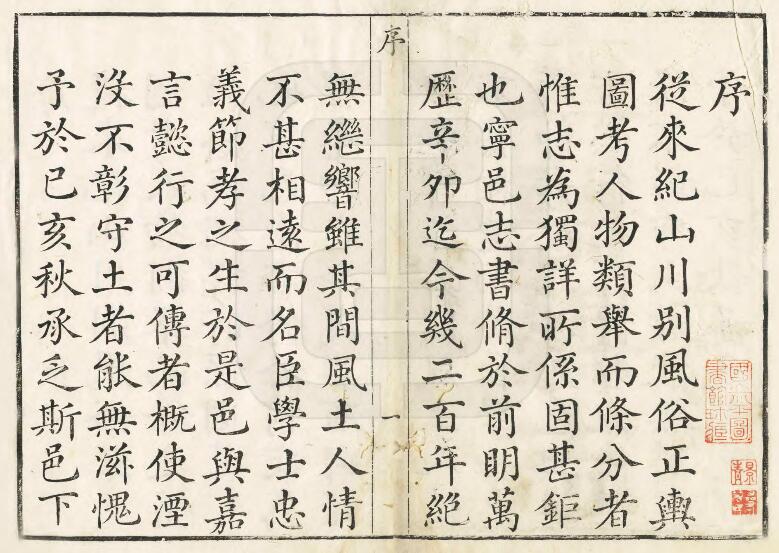 序
從來紀山川别風俗正輿
圖考人物類舉而條分者
惟志為獨詳所係固甚鉅
也寧邑志書脩於前明萬
歷辛夘迄今幾二百年絶
序
一
無繼響雖其間風土人情
不甚相遠而名臣學士忠
義節孝之生於是邑與嘉
言懿行之可傳者概使湮
沒不彰守土者能無滋愧
予於己亥秋承乏斯邑下